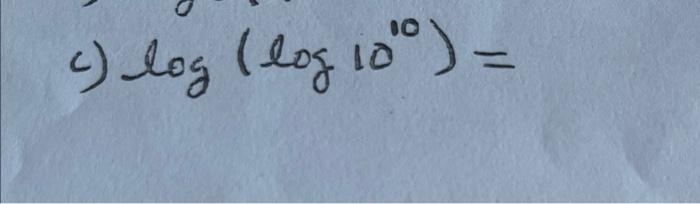 c) log (log 10¹⁰) =